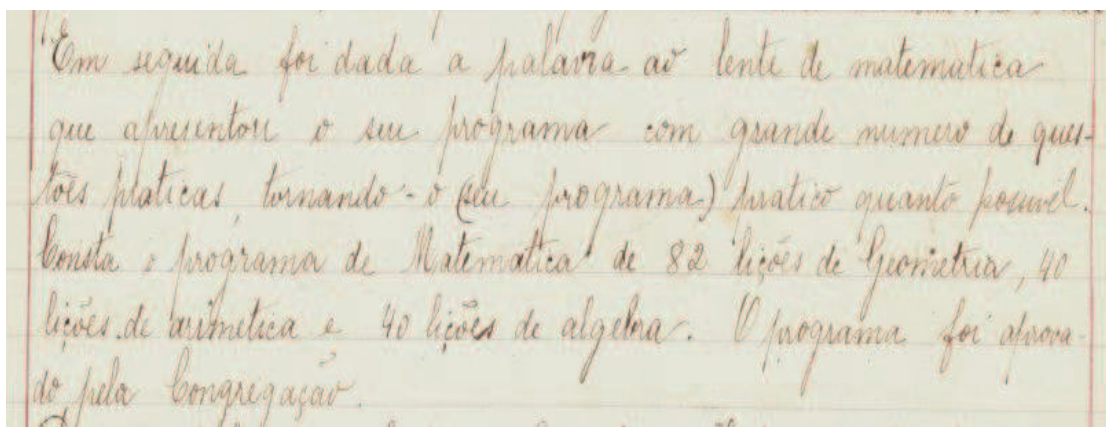 Em seguida foi dada a palavra ao lente de matematica
que apresentou o seu programa com grande numero de ques-
tões praticas, tornando-o (seu programa) pratico quanto possivel.
Consta o programa de Matematica de 82 lições de Geometria, 40
lições de arimetica e 40 lições de algebra. O programa foi aprova-
do pela Congregação.